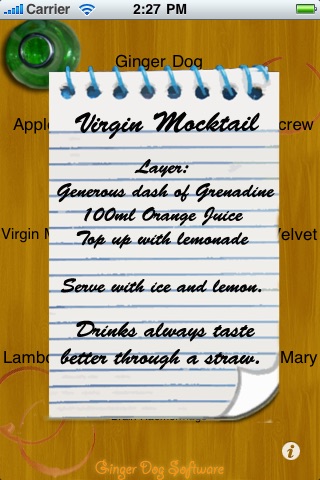 Carrier 2:27 PM
Ginger Dog
Apple crew
Virgin Mocktail
Layer:
Generous dash of Grenadine
100ml Orange Juice
Virgin Top up with lemonade Velvet
Serve with ice and lemon.
Drinks always taste
Lambo better through a straw. Mary
Ginger Dog Software